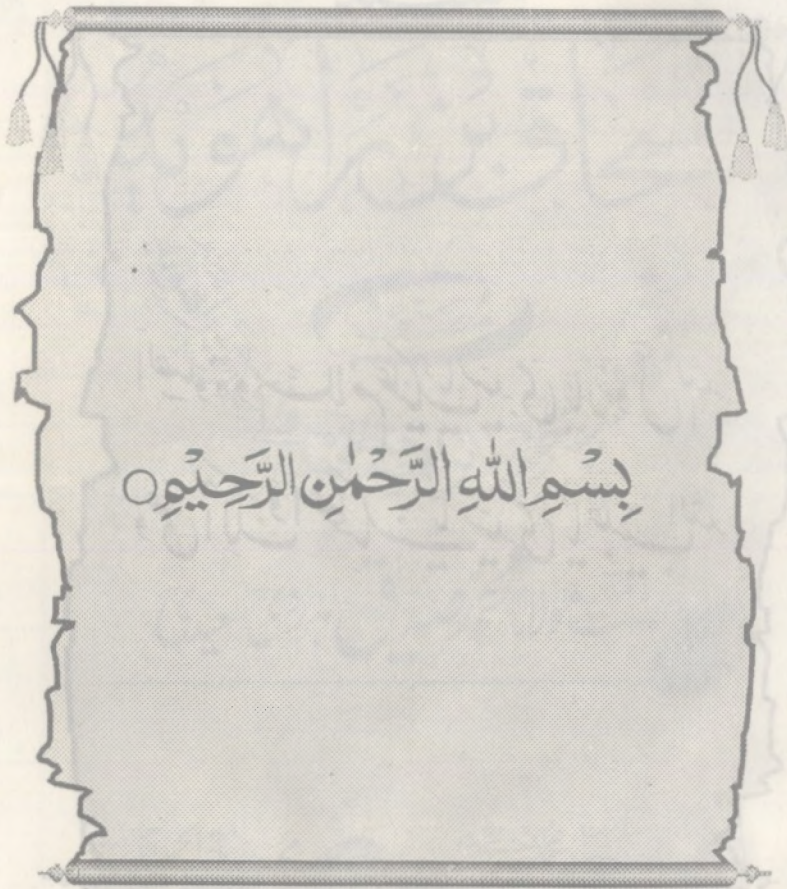 بِسْمِ اللّٰهِ الرَّحْمٰنِ الرَّحِيْمِ○